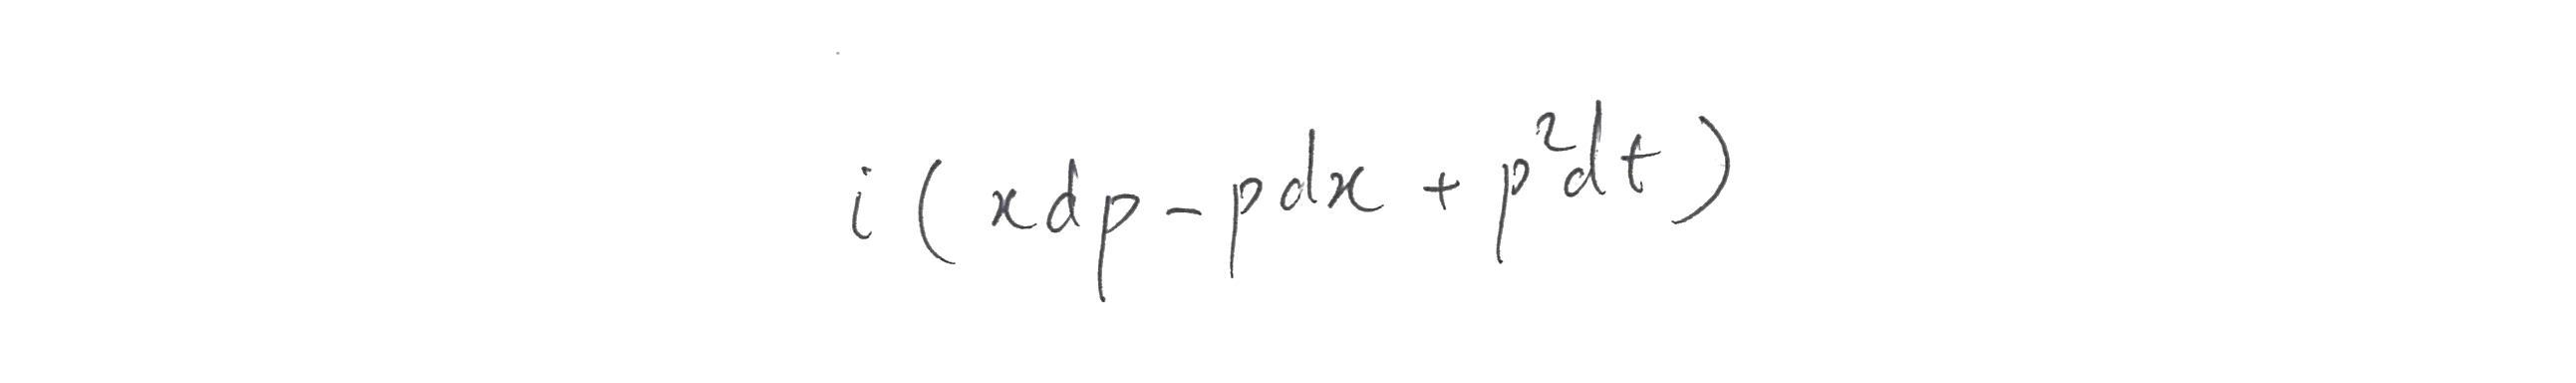 i(xdp-pdx+p²dt)